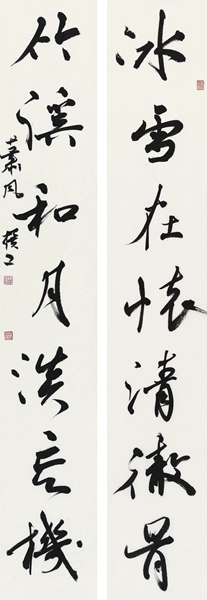 冰雪在怀清彻骨
竹溪和月淡忘机
萧风